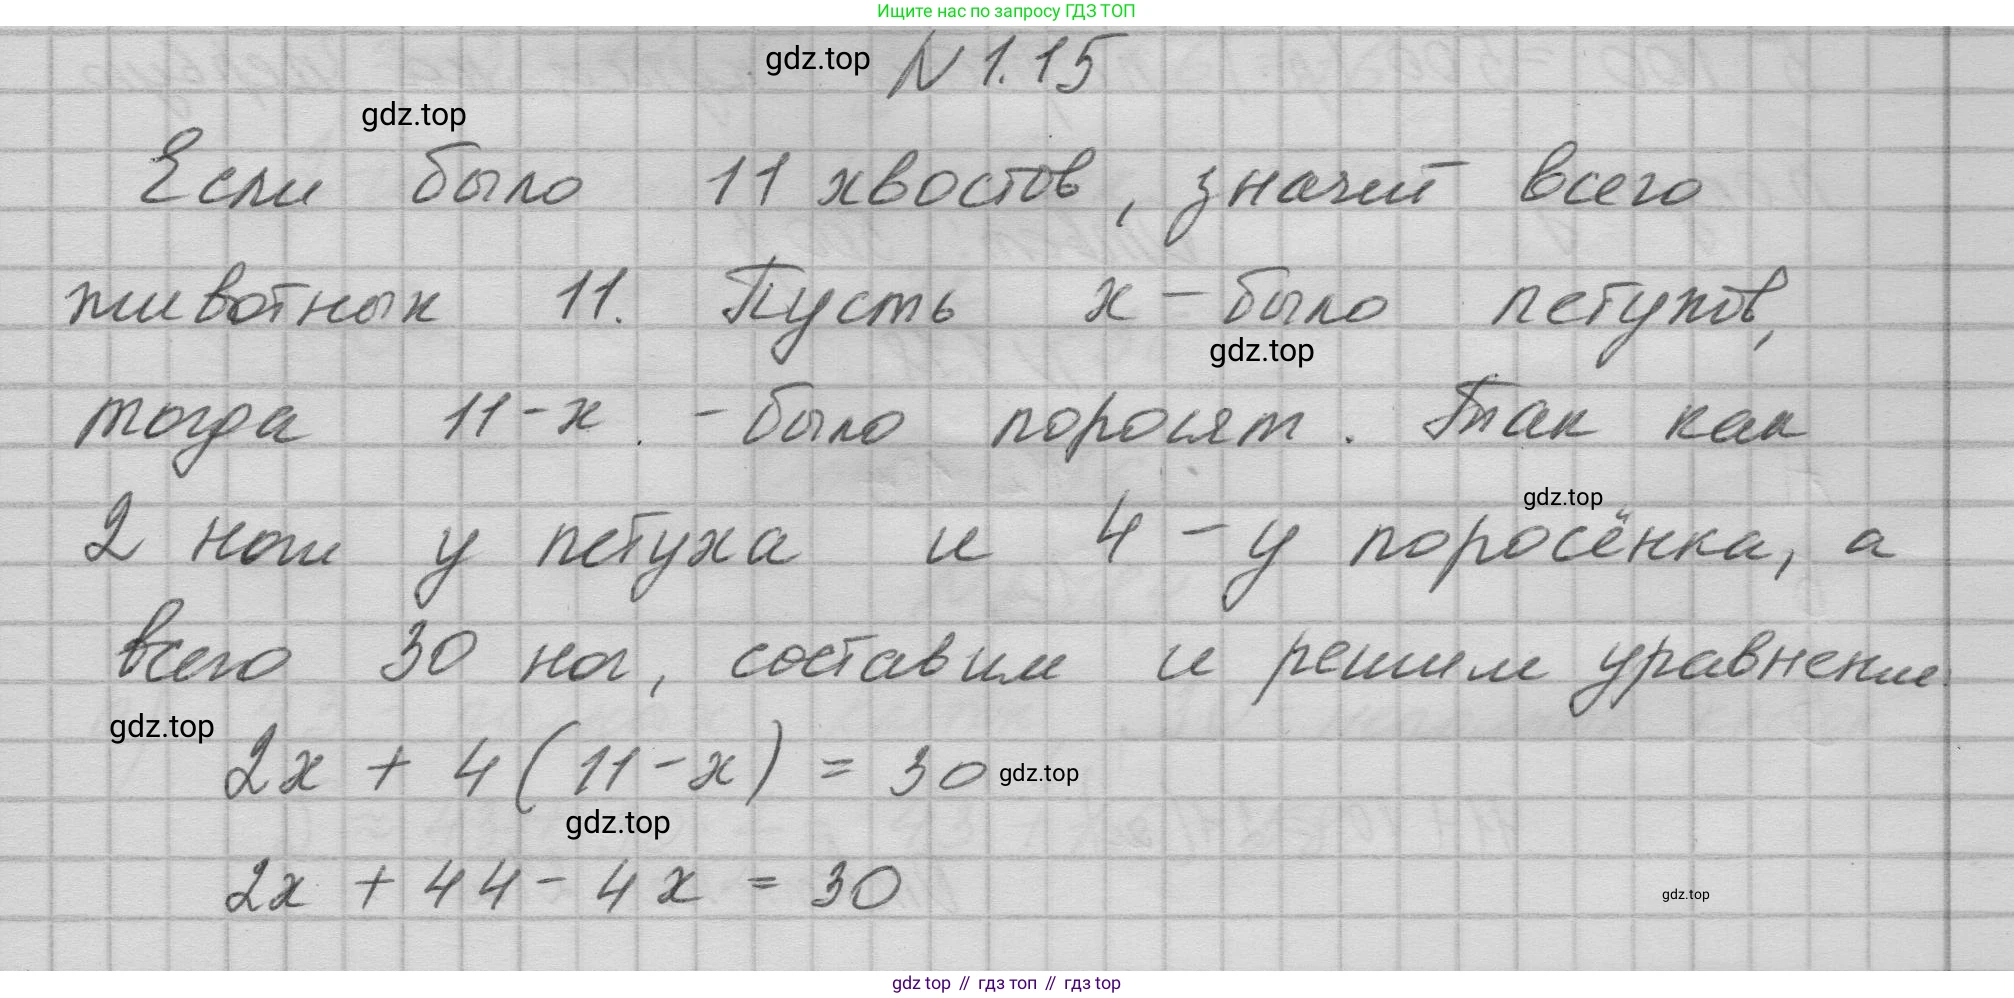 Ищите нас по запросу ГДЗ ТОП
gdz.top N 1.15
gdz.top
Если было 11 хвостов, значит всего
животных 11. Пусть x - было петухов,
gdz.top
тогда 11-x - было поросят. Так как
gdz.top
2 ноги у петуха и 4 - у поросёнка, а
всего 30 ног, составим и решим уравнение.
gdz.top
2x + 4(11-x) = 30 gdz.top
gdz.top
2x + 44 - 4x = 30
gdz.top
gdz top // гдз топ // гдз top